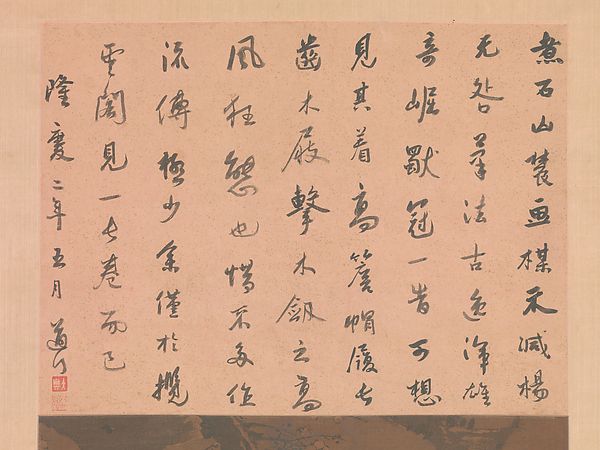 煮石山農画楳不減楊
无咎筆法古逸渾雄
奇崛獸冠一昔可想
見其着高簷帽履長
齒木屐擊木劔之高
風狂態也惜不多作
流傳極少余僅於攬
雲閣見一長卷而已
隆慶二年五月 道行